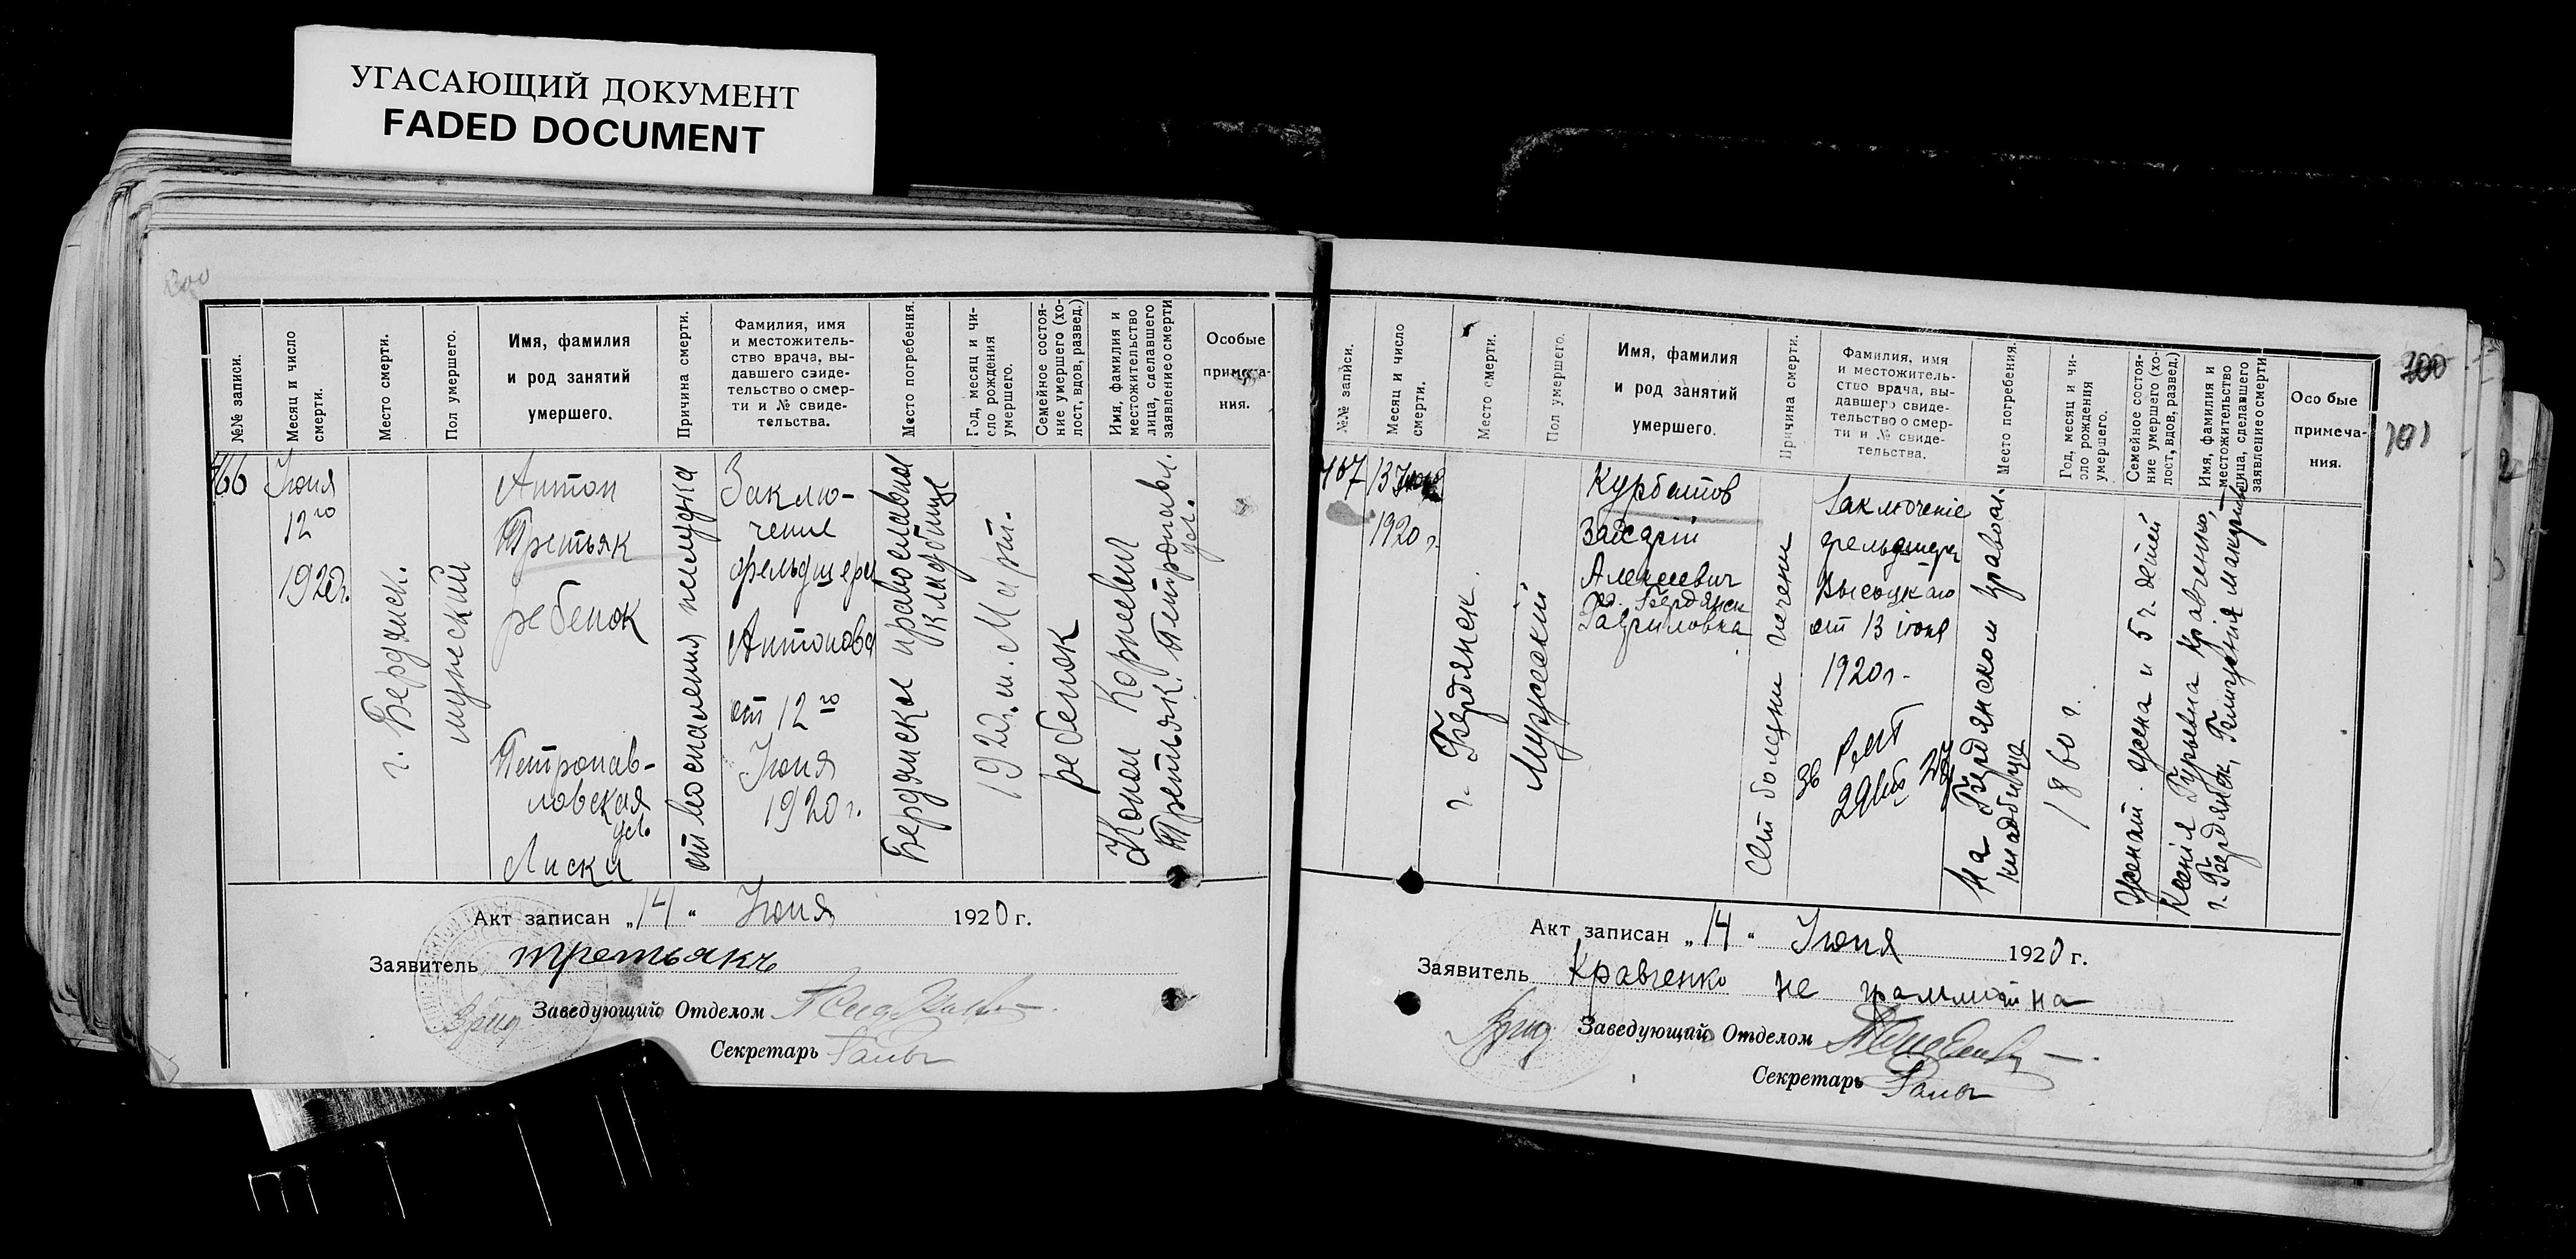 УГАСАЮЩИЙ ДОКУМЕНТ
FADED DOCUMENT
200
№№ записи.
Месяц и число
смерти.
Место смерти.
Пол умершего.
Имя, фамилия
и род занятий
умершего.
Причина смерти.
Фамилия, имя
и местожитель-
ство врача, вы-
давшего свиде-
тельство о смер-
ти и № свиде-
тельства.
Место погребения.
Год, месяц и чи-
сло рождения
умершего.
Семейное состоя-
ние умершего (хо-
лост, вдов, развед.)
Имя, фамилия и
местожительство
лица, сделавшего
заявление о смерти
Особые
примеча-
ния.
166
Июня
12го
1920г.
г. Бердянск.
мужеский
Антон
Третьяк
ребенок
Петропав-
ловская
Лиски
от воспаления желудка
Заклю-
чение
фельдшера
Антонова
от 12го
Июня
1920г.
Бердянское православное
кладбище
ребенок
Конон Корнеевич
Третьяк.
Акт записан „14“ Июня 1920 г.
Заявитель третьякъ
Врид Заведующий Отделом
Секретарь
№№ записи.
Месяц и число
смерти.
Место смерти.
Пол умершего.
Имя, фамилия
и род занятий
умершего.
Причина смерти.
Фамилия, имя
и местожитель-
ство врача, вы-
давшего свиде-
тельство о смер-
ти и № свиде-
тельства.
Место погребения.
Год, месяц и чи-
сло рождения
умершего.
Семейное состоя-
ние умершего (хо-
лост, вдов, развед.)
Имя, фамилия и
местожительство
лица, сделавшего
заявление о смерти
Особые
примеча-
ния.
101
167
13 Июня
1920 г.
г. Бердянск.
Мужеский
Курбатов
Алексеевич
гр. Бердянск
Гавриловка
От болезни печени
Заключение
фельдшера
Высоцкаго
от 13 июня
1920г.
На Бердянском правосл.
кладбище
1860 г.
Женат. жена и 5 ч. детей
Ксения Гурьевна Кравченко,
г. Бердянск,
Акт записан „14“ Июня 1920 г.
Заявитель Кравченко не граммотна
Врид Заведующий Отделом
Секретарь